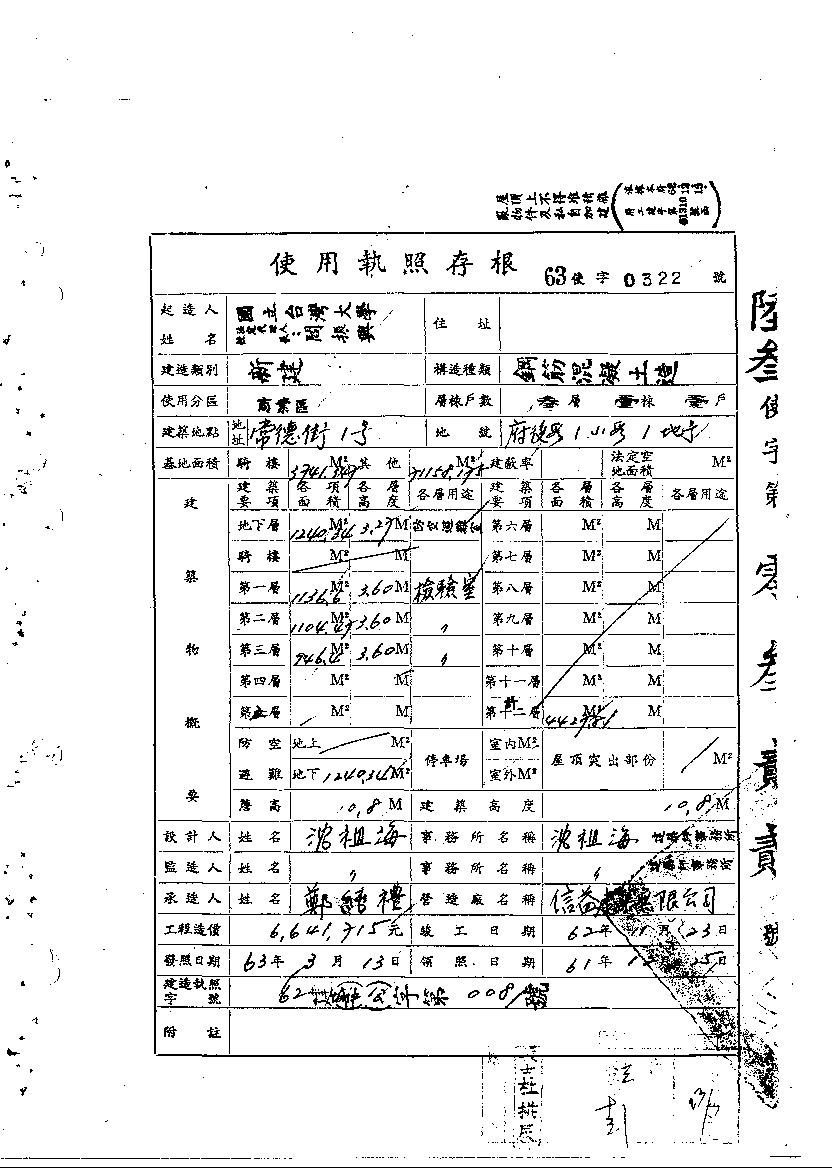 屋頂上不得堆積雜
物件及私自加建
使用執照存根 63使字 0322 號
起造人姓名 國立台灣大學 閻振興 住址
建造類別 新建 構造種類 鋼筋混凝土造
使用分區 商業區 層棟戶數 層 棟 戶
建築地點 地址 常德街1號 地號
基地面積 騎樓 M² 其他 M² 建蔽率 法定空地面積 M²
建築要項 各項面積 各層高度 各層用途 建築要項 各層面積 各層高度 各層用途
建築物概要
地下層 1240.34 M² 3.27 M 第六層 M² M
騎樓 M² M 第七層 M² M
第一層 1136.6 M² 3.60 M 檢驗室 第八層 M² M
第二層 M² 3.60 M 〃 第九層 M² M
第三層 946.4 M² 3.60 M 〃 第十層 M² M
第四層 M² M 第十一層 M² M
第五層 M² M 第十二層 計 M
防空避難 地上 M² 停車場 室內 M² 屋頂突出部份 M²
地下 1240.34 M² 室外 M²
簷高 10.8 M 建築高度 10.8 M
設計人 姓名 沈祖海 事務所名稱 沈祖海
監造人 姓名 〃 事務所名稱 〃
承造人 姓名 營造廠名稱 限公司
工程造價 6,641,715元 竣工日期 62年11月23日
發照日期 63年3月13日 領照日期 61年
建造執照字號 62 字第 號
附註
陸叁使字第零叁貳貳號